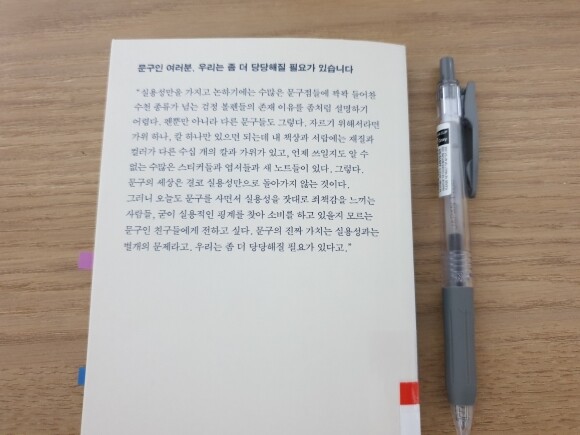 문구인 여러분, 우리는 좀 더 당당해질 필요가 있습니다
"실용성만을 가지고 논하기에는 수많은 문구점들에 빽빽 들어찬
수천 종류가 넘는 검정 볼펜들의 존재 이유를 좀처럼 설명하기
어렵다. 펜뿐만 아니라 다른 문구들도 그렇다. 자르기 위해서라면
가위 하나, 칼 하나만 있으면 되는데 내 책상과 서랍에는 재질과
컬러가 다른 수십 개의 칼과 가위가 있고, 언제 쓰일지도 알 수
없는 수많은 스티커들과 엽서들과 새 노트들이 있다. 그렇다.
문구의 세상은 결코 실용성만으로 돌아가지 않는 것이다.
그러니 오늘도 문구를 사면서 실용성을 잣대로 죄책감을 느끼는
사람들, 굳이 실용적인 핑계를 찾아 소비를 하고 있을지 모르는
문구인 친구들에게 전하고 싶다. 문구의 진짜 가치는 실용성과는
별개의 문제라고. 우리는 좀 더 당당해질 필요가 있다고."